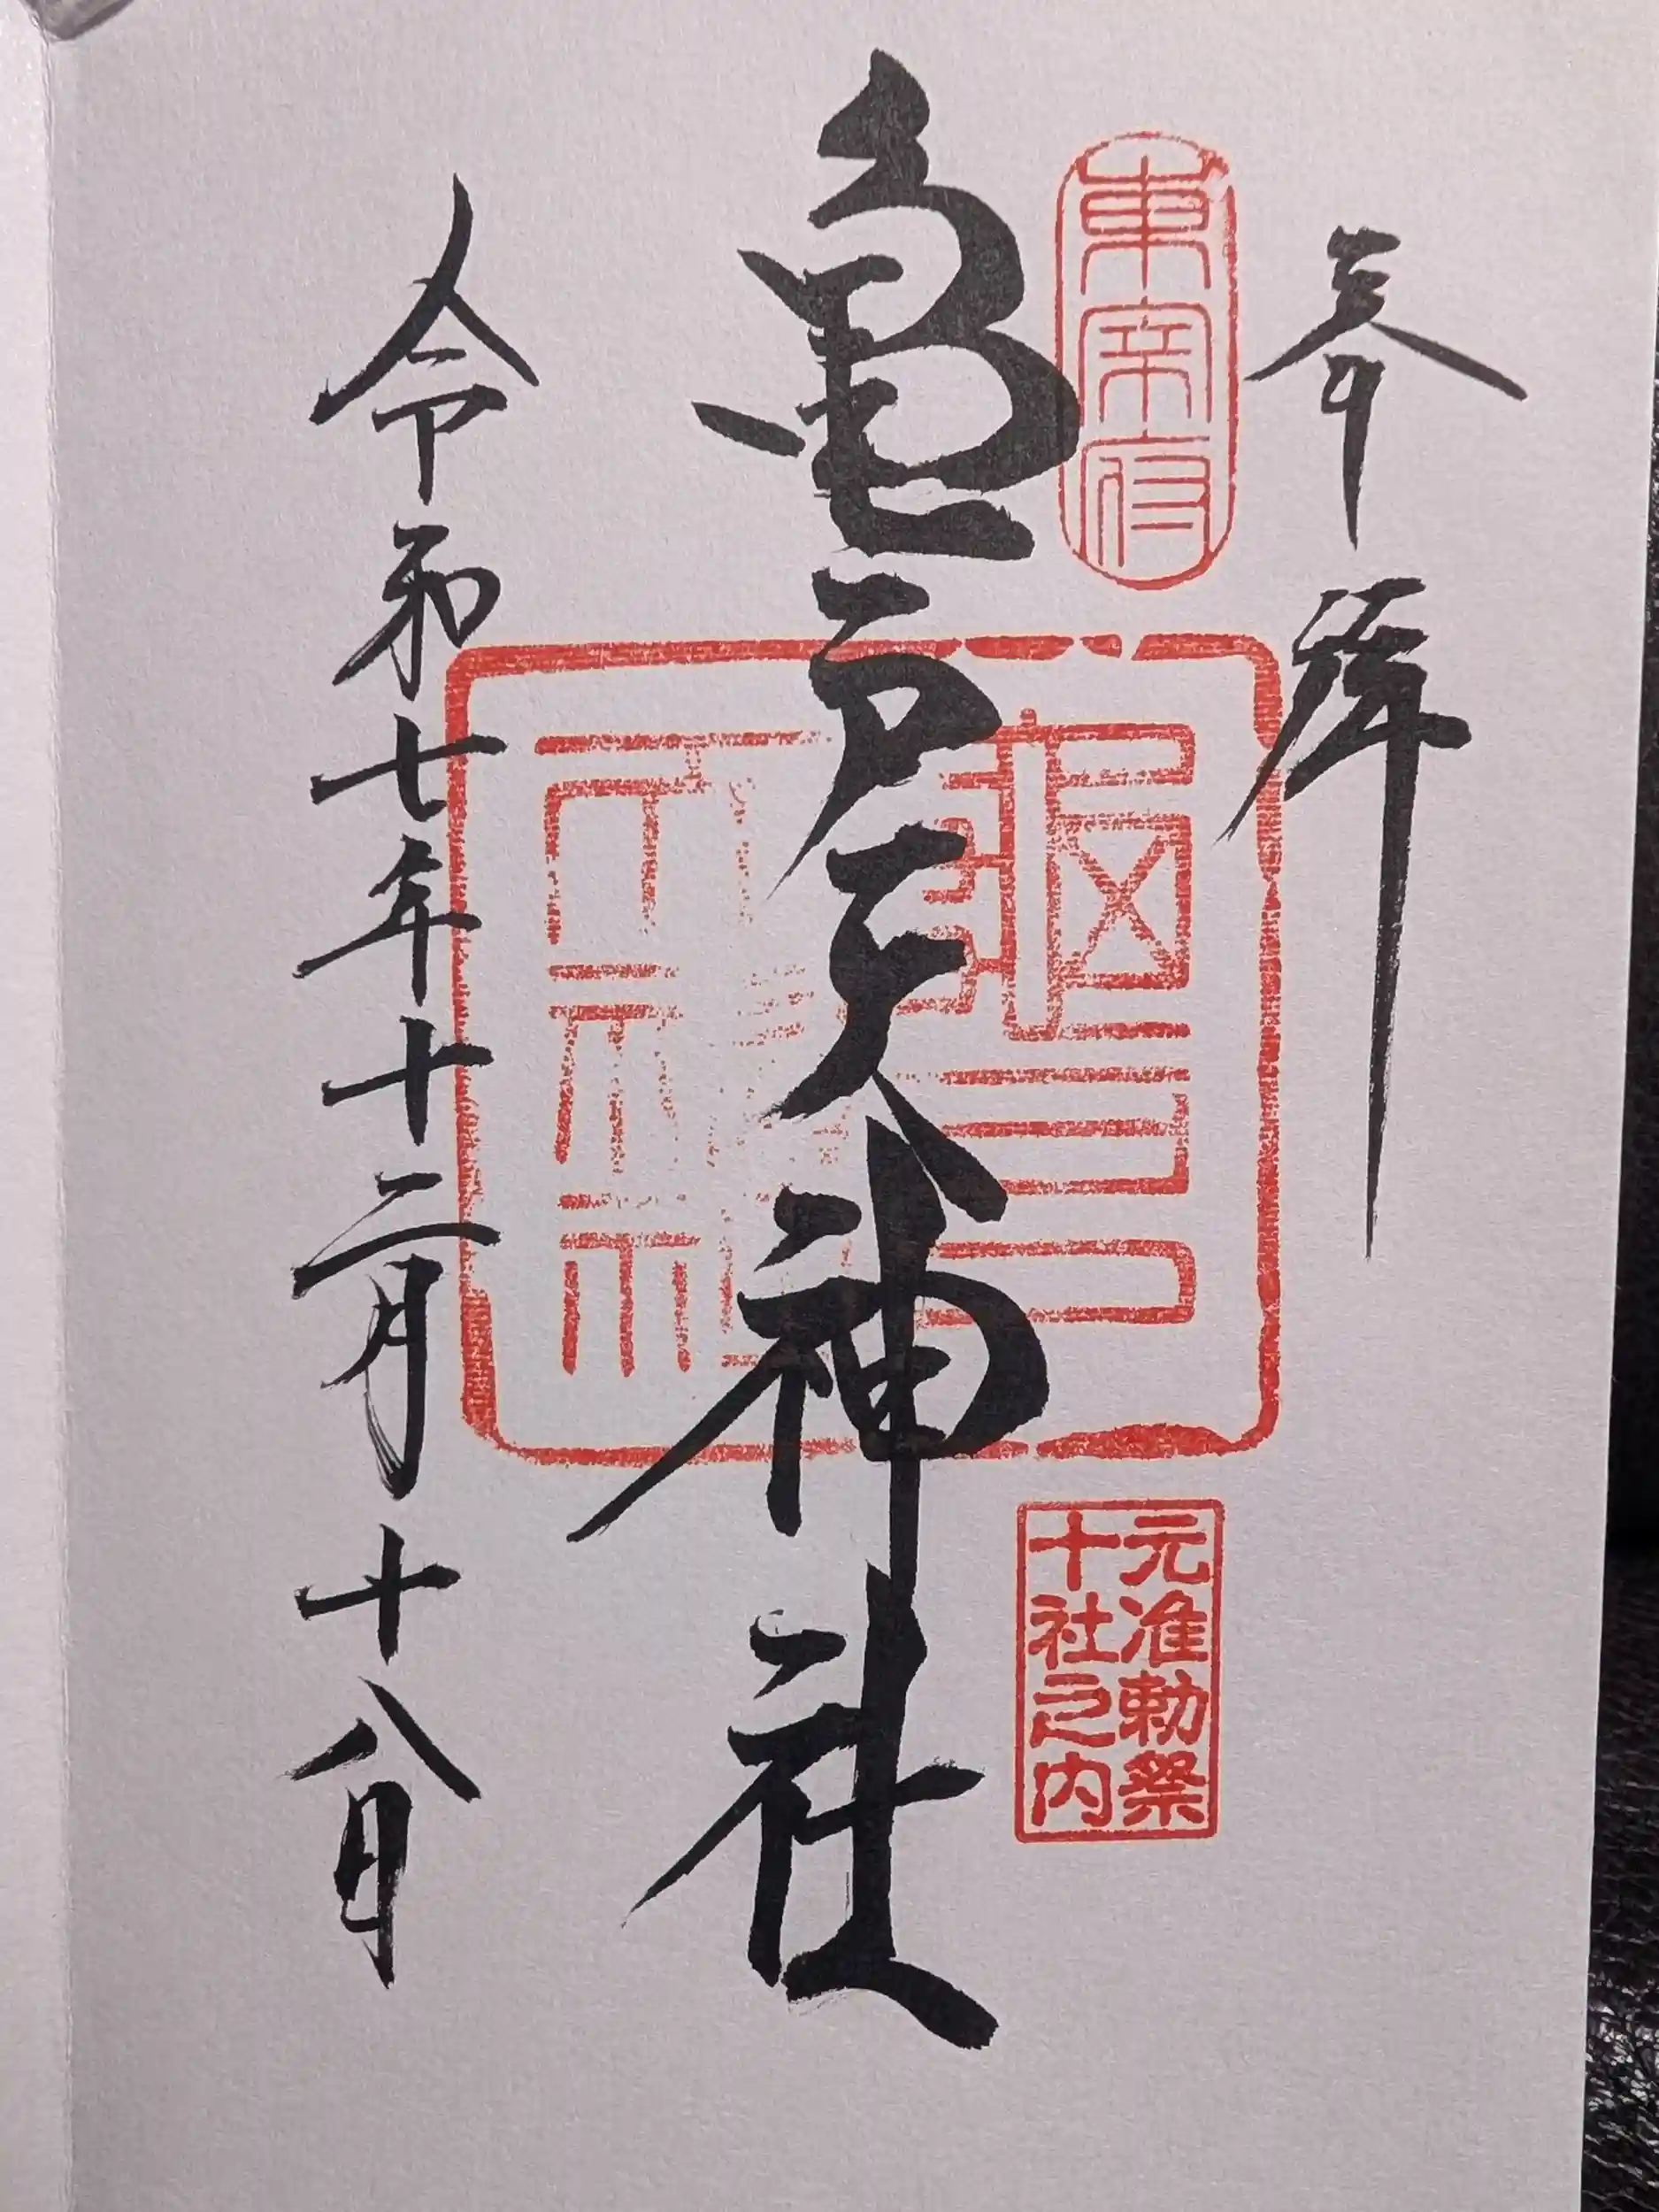 参拝
東宰府
元准勅祭
十社之内
亀戸天神社
令和七年十二月十八日